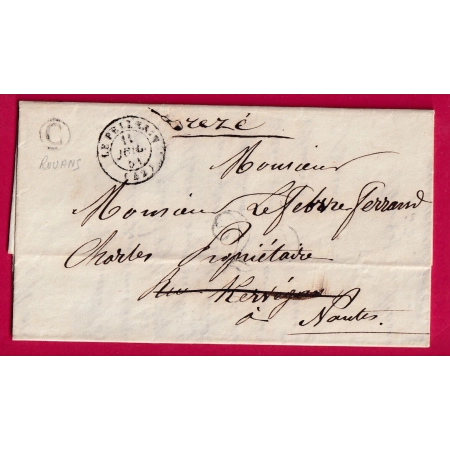 Rezé
C
ROUANS
LE PELLERIN
11
JUIL.
51
(42)
Monsieur
Monsieur Lefebvre Ferrand
Charles Propriétaire
Rue Kervégan
à Nantes.